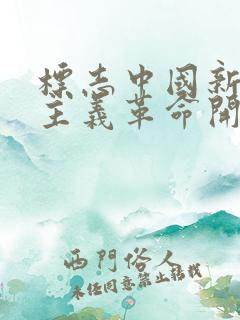 標志中國新
主義革命開
西門俗人
未经同意禁止转载